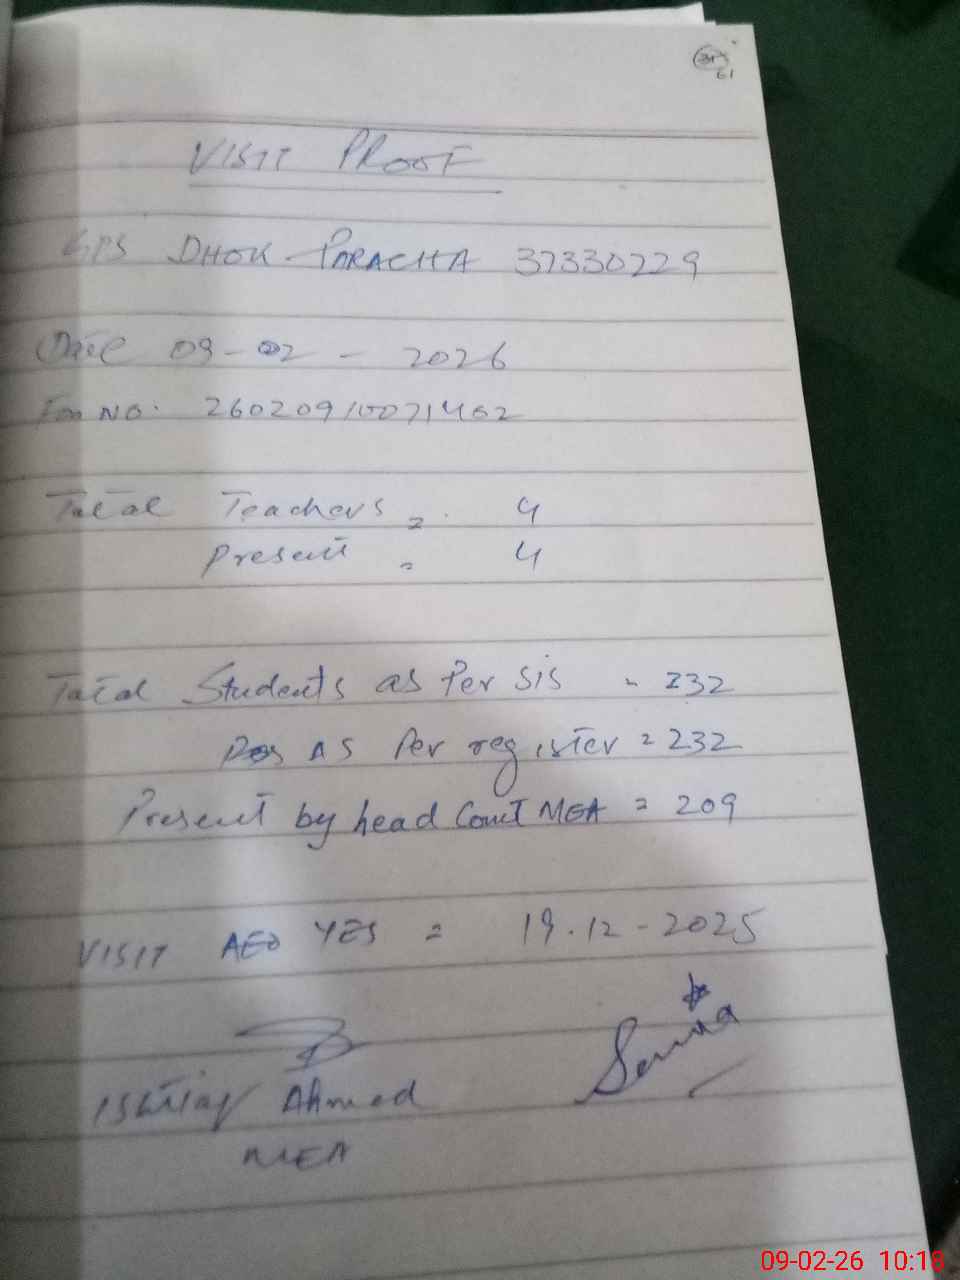 VISIT PROOF
GPS DHOK PARACHA 37330229
Date 09-02-2026
No. 26020910071402
Total Teachers = 4
Present = 4
Total Students as Per SIS = 232
As Per register = 232
Present by head Count MEA = 209
VISIT AEO YES = 19.12-2025
Ishtiaq Ahmed
MEA
09-02-26 10:18